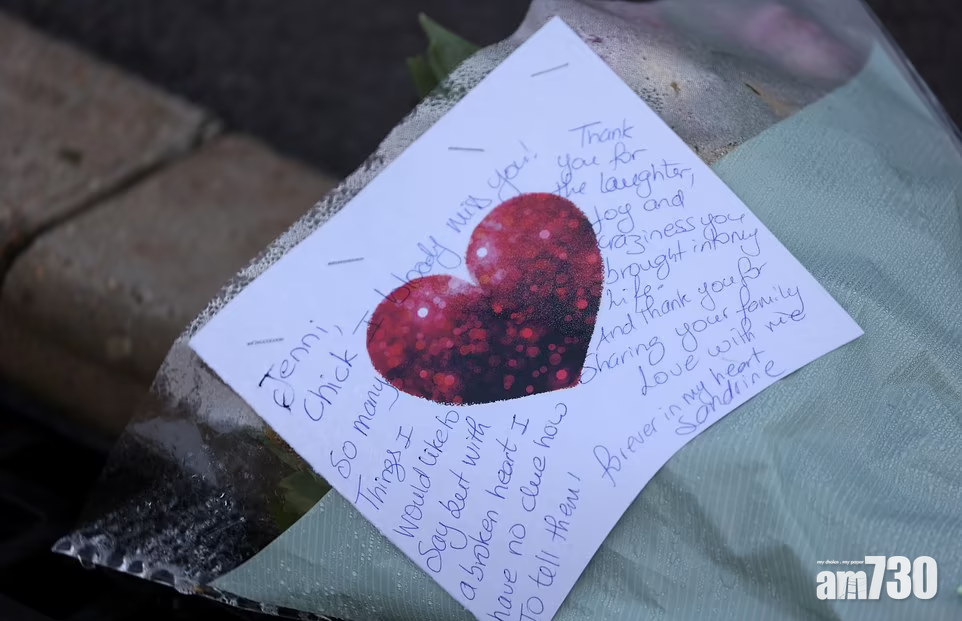 Jenni,
Chick, I bloody miss you!
So many
Things I
Would like to
Say but with
a broken heart I
have no clue how
To tell them!
Thank
you for
the laughter,
Joy and
craziness you
brought into my
Life.
And thank you for
Sharing your family
Love with me
forever in my heart
Sandrine
am730